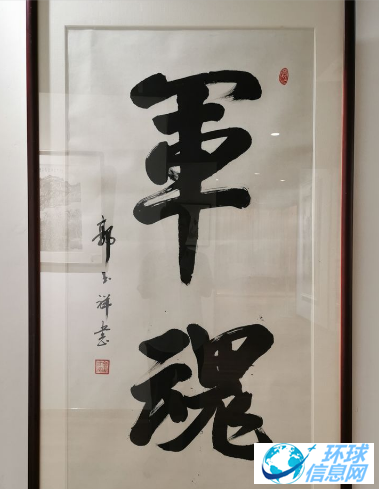 軍魂
郭玉祥书
环球
信息网